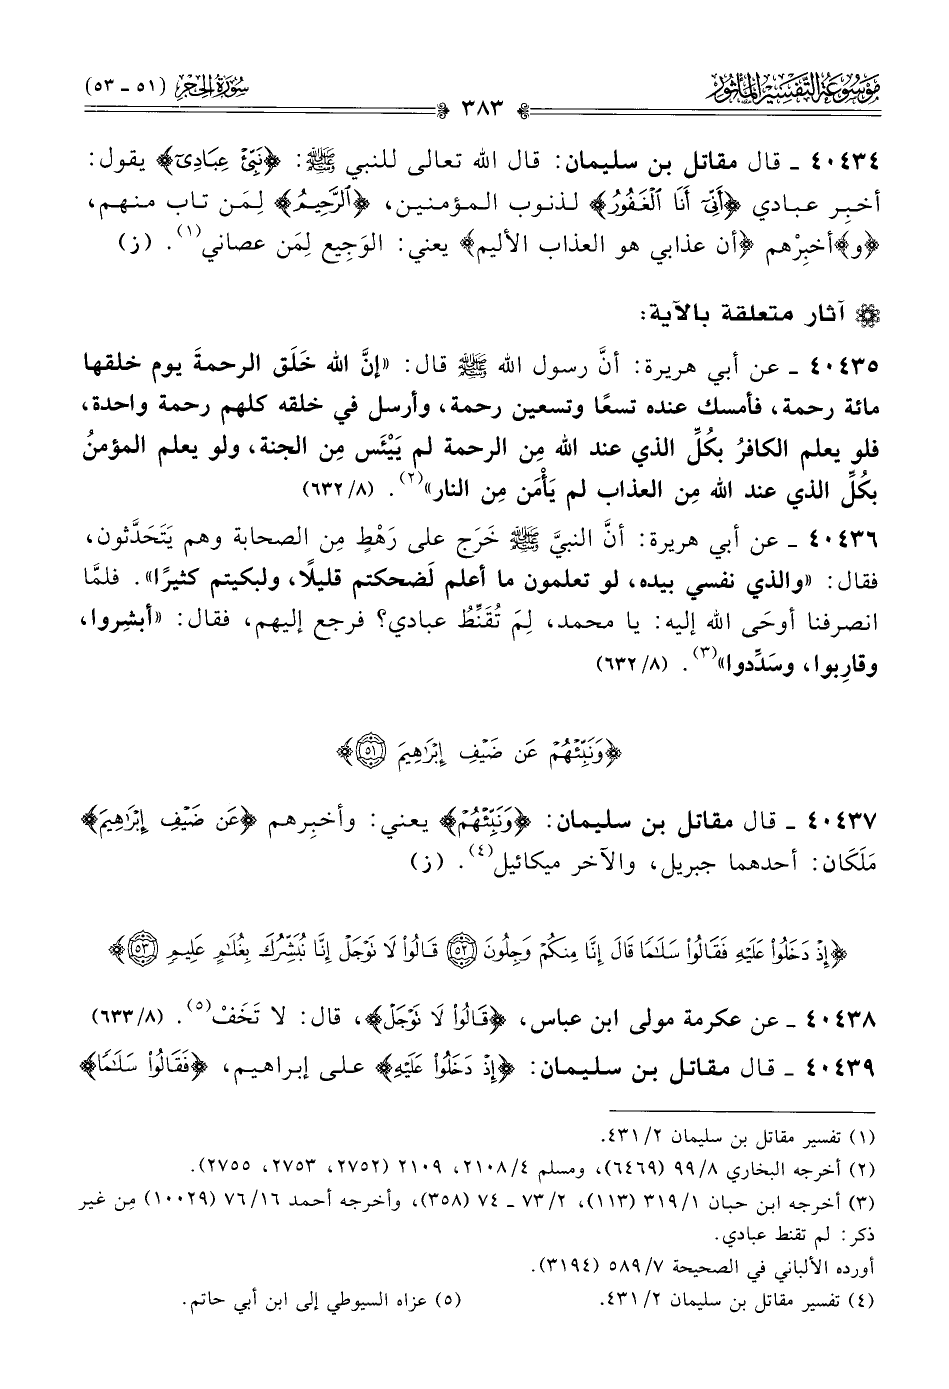 مَوْسُوعَةُ التَّفْسِيرِ المَأْثُور
سُورَةُ الحِجْرِ (٥١ ـ ٥٣)
٣٨٣
٤٠٤٣٤ ـ قال مقاتل بن سليمان: قال الله تعالى للنبي ﷺ: ﴿نَبِّئْ عِبَادِىٓ﴾ يقول:
أخبِر عبادي ﴿أَنِّىٓ أَنَا ٱلْغَفُورُ﴾ لذنوب المؤمنين، ﴿ٱلرَّحِيمُ﴾ لِمَن تاب منهم،
﴿و﴾أخبِرْهم ﴿أن عذابي هو العذاب الأليم﴾ يعني: الوَجِيع لِمَن عصاني(١). (ز)
آثار متعلقة بالآية:
٤٠٤٣٥ ـ عن أبي هريرة: أنَّ رسول الله ﷺ قال: «إنَّ الله خَلَق الرحمةَ يوم خلقها
مائة رحمة، فأمسك عنده تسعًا وتسعين رحمة، وأرسل في خلقه كلهم رحمة واحدة،
فلو يعلم الكافرُ بكُلِّ الذي عند الله مِن الرحمة لم يَيْئَس مِن الجنة، ولو يعلم المؤمنُ
بكُلِّ الذي عند الله مِن العذاب لم يَأْمَن مِن النار»(٢). (٨/ ٦٣٢)
٤٠٤٣٦ ـ عن أبي هريرة: أنَّ النبيَّ ﷺ خَرَج على رَهْطٍ مِن الصحابة وهم يَتَحَدَّثون،
فقال: «والذي نفسي بيده، لو تعلمون ما أعلم لَضحكتم قليلًا، ولبكيتم كثيرًا». فلمَّا
انصرفنا أوحَى الله إليه: يا محمد، لِمَ تُقَنِّطُ عبادي؟ فرجع إليهم، فقال: «أبشِروا،
وقارِبوا، وسَدِّدوا»(٣). (٨/ ٦٣٢)
﴿وَنَبِّئْهُمْ عَن ضَيْفِ إِبْرَٰهِيمَ ٥١﴾
٤٠٤٣٧ ـ قال مقاتل بن سليمان: ﴿وَنَبِّئْهُمْ﴾ يعني: وأخبِرهم ﴿عَن ضَيْفِ إِبْرَٰهِيمَ﴾
مَلَكان: أحدهما جبريل، والآخر ميكائيل(٤). (ز)
﴿إِذْ دَخَلُوا۟ عَلَيْهِ فَقَالُوا۟ سَلَـٰمًا قَالَ إِنَّا مِنكُمْ وَجِلُونَ ٥٢ قَالُوا۟ لَا تَوْجَلْ إِنَّا نُبَشِّرُكَ بِغُلَـٰمٍ عَلِيمٍ ٥٣﴾
٤٠٤٣٨ ـ عن عكرمة مولى ابن عباس، ﴿قَالُوا۟ لَا تَوْجَلْ﴾، قال: لا تَخَفْ(٥). (٨/ ٦٣٣)
٤٠٤٣٩ ـ قال مقاتل بن سليمان: ﴿إِذْ دَخَلُوا۟ عَلَيْهِ﴾ على إبراهيم، ﴿فَقَالُوا۟ سَلَـٰمًا﴾
(١) تفسير مقاتل بن سليمان ٢/ ٤٣١.
(٢) أخرجه البخاري ٨/ ٩٩ (٦٤٦٩)، ومسلم ٤/ ٢١٠٨، ٢١٠٩ (٢٧٥٢، ٢٧٥٣، ٢٧٥٥).
(٣) أخرجه ابن حبان ١/ ٣١٩ (١١٣)، ٢/ ٧٣ ـ ٧٤ (٣٥٨)، وأخرجه أحمد ١٦/ ٧٦ (١٠٠٢٩) مِن غير
ذكر: لم تقنط عبادي.
أورده الألباني في الصحيحة ٧/ ٥٨٩ (٣١٩٤).
(٤) تفسير مقاتل بن سليمان ٢/ ٤٣١.
(٥) عزاه السيوطي إلى ابن أبي حاتم.